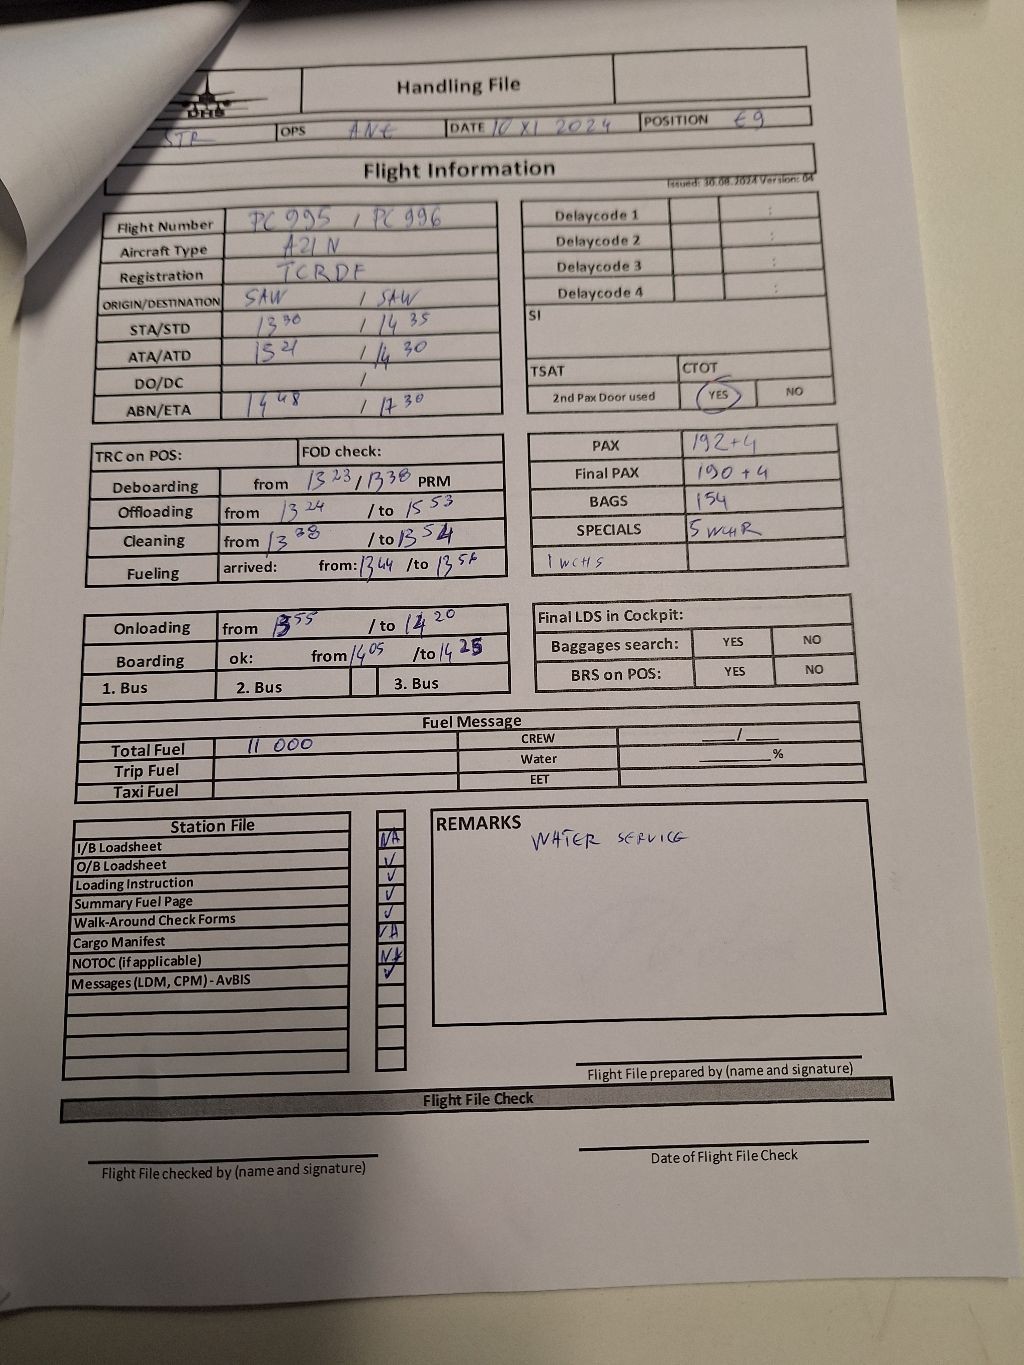 Handling File
DHS
STR OPS ANE DATE 10 XI 2024 POSITION E9
Flight Information
Issued: 30.08.2024 Version: 04
Flight Number PC 995 / PC 996
Aircraft Type A21N
Registration TCRDF
ORIGIN/DESTINATION SAW / SAW
STA/STD 13 30 / 14 35
ATA/ATD 1521 / 14 30
DO/DC /
ABN/ETA 1448 / 17 30
Delaycode 1 :
Delaycode 2 :
Delaycode 3 :
Delaycode 4 :
SI
TSAT CTOT
2nd Pax Door used YES NO
TRC on POS: FOD check:
Deboarding from 13 23 / 13 38 PRM
Offloading from 13 24 / to 15 53
Cleaning from 13 38 / to 13 54
Fueling arrived: from: 13 44 /to 13 56
PAX 192+4
Final PAX 190+4
BAGS 154
SPECIALS 5 WCHR
1 WCHS
Onloading from 13 55 / to 14 20
Boarding ok: from 14 05 /to 14 25
1. Bus 2. Bus 3. Bus
Final LDS in Cockpit:
Baggages search: YES NO
BRS on POS: YES NO
Fuel Message
Total Fuel 11 000 CREW ___/___
Trip Fuel Water ______%
Taxi Fuel EET
Station File
I/B Loadsheet NA
O/B Loadsheet ✓
Loading Instruction ✓
Summary Fuel Page ✓
Walk-Around Check Forms ✓
Cargo Manifest NA
NOTOC (if applicable) NA
Messages (LDM, CPM) - AvBIS ✓
REMARKS
WATER SERVICE
Flight File prepared by (name and signature)
Flight File Check
Flight File checked by (name and signature)
Date of Flight File Check